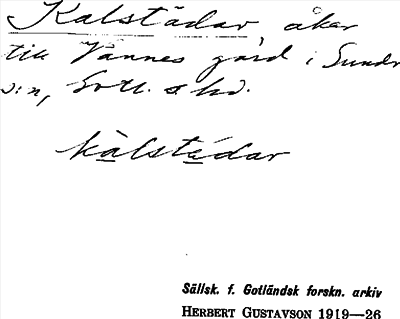 Kalstädar, åker
till Vännes gård i Sundr
s:n, Gotl. s hd.
kàlstädar
Sällsk. f. Gotländsk forskn. arkiv
HERBERT GUSTAVSON 1919—26